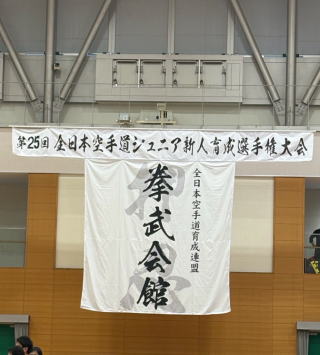 第25回 全日本空手道ジュニア新人育成選手権大会
全日本空手道育成連盟
拳武会館